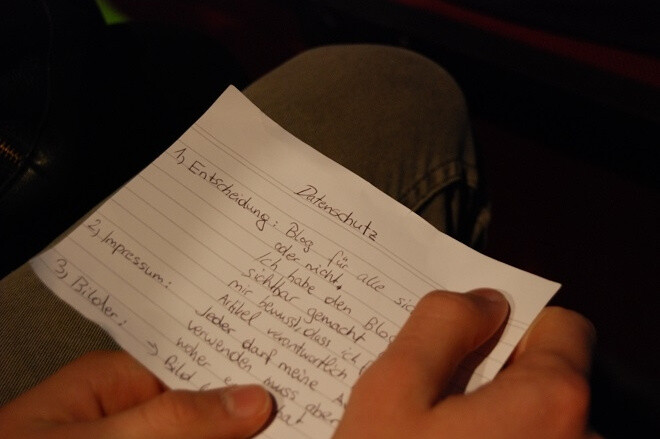 Datenschutz
1, Entscheidung: Blog für alle
oder nicht.
Ich habe den Blog
sichtbar gemacht
2, Impressum: mir bewusst, dass ich
Artikel verantwortlich
Jeder darf meine
verwenden muss aber
woher
3, Bilder: → Bild